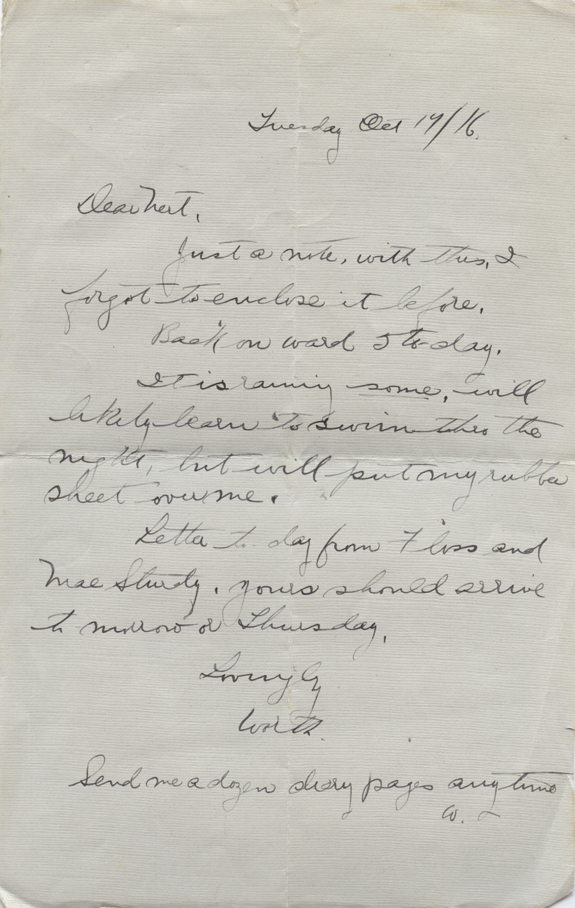 Tuesday Oct 17/16.
Dear Nert,
Just a note, with this, I
forgot to enclose it before.
Back on ward 5 to-day.
It is raining some, will
likely learn to swim thro the
night, but will put my rubber
sheet over me.
Letter to day from Floss and
Mae Sturdy. Yours should arrive
to morrow or Thursday.
Lovingly
Worth.
Send me a dozen diary pages anytime
W.